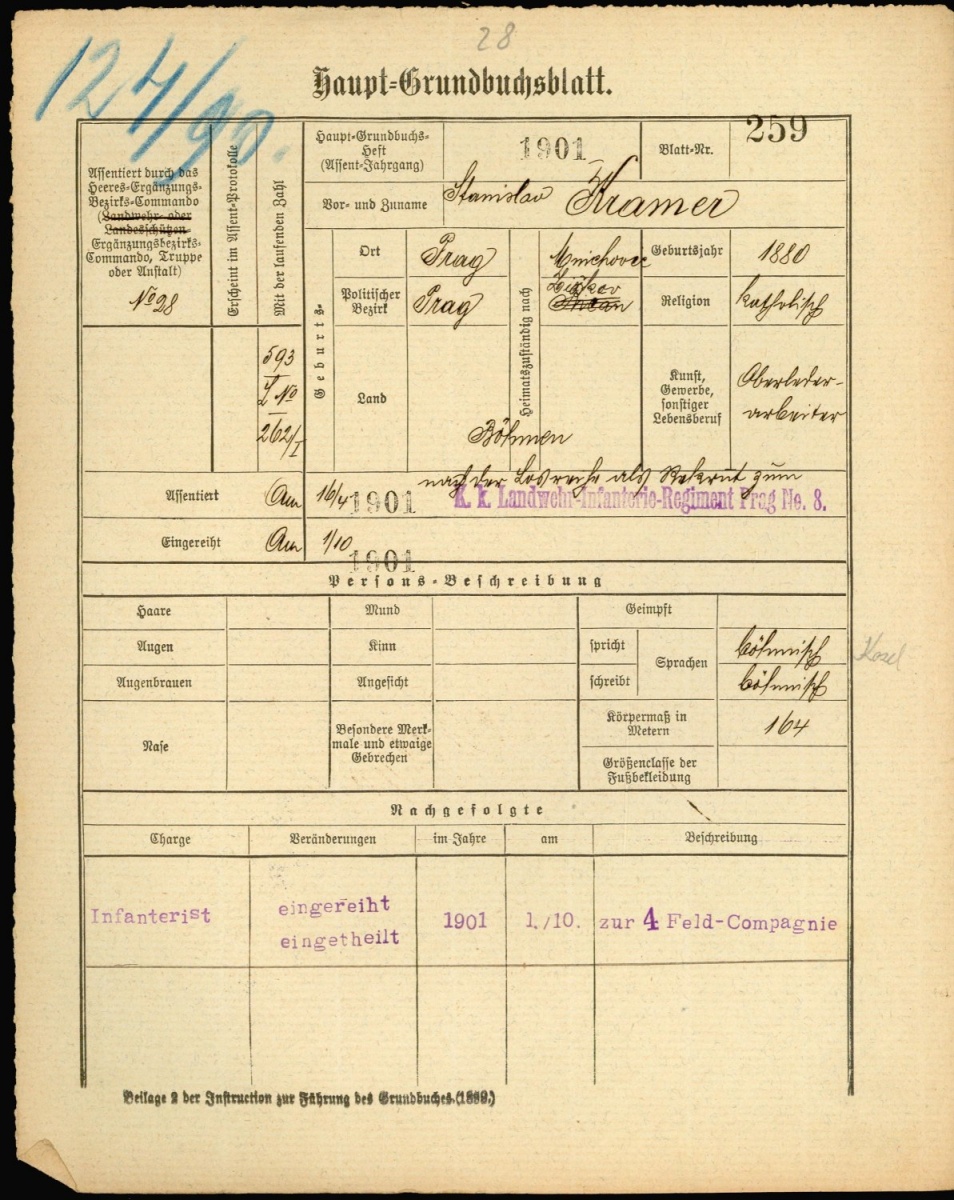 28
124/90.
Haupt-Grundbuchsblatt.
Assentiert durch das
Heeres-Ergänzungs-
Bezirks-Commando
(Landwehr- oder
Landesschützen-
Ergänzungsbezirks-
Commando, Truppe
oder Anstalt)
No 28
Erscheint im Assent-Protokolle
Mit der laufenden Zahl
593
L No
262/I
Haupt-Grundbuchs-
Heft
(Assent-Jahrgang)
1901
Blatt-Nr.
259
Vor- und Zuname
Stanislav Kramer
Geburts-
Ort
Prag
Politischer
Bezirk
Prag
Land
Böhmen
Heimatszuständig nach
Mnichovic
Žižkov
Geburtsjahr
1880
Religion
katholisch
Kunst,
Gewerbe,
sonstiger
Lebensberuf
Oberleder-
arbeiter
Assentiert Am 16/4 1901
nach der Losreihe als Rekrut zum
K. k. Landwehr-Infanterie-Regiment Prag No. 8.
Eingereiht Am 1/10 1901
Persons-Beschreibung
Haare
Mund
Geimpft
Augen
Kinn
spricht
Sprachen
böhmisch
Kozel
Augenbrauen
Angesicht
schreibt
böhmisch
Nase
Besondere Merk-
male und etwaige
Gebrechen
Körpermaß in
Metern
164
Größenclasse der
Fußbekleidung
Nachgefolgte
Charge Veränderungen im Jahre am Beschreibung
Infanterist
eingereiht
eingetheilt
1901
1./10.
zur 4 Feld-Compagnie
Beilage 2 der Instruction zur Führung des Grundbuches.(1889.)